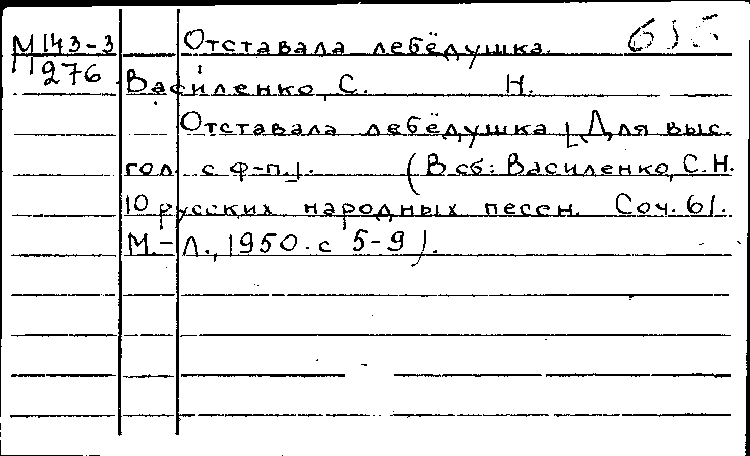 М143-3 Отставала лебёдушка.
276 Василенко, С. Н.
Отставала лебёдушка [Для выс.
гол. с ф-п.]. (В сб: Василенко, С.Н.
10 русских народных песен. Соч. 61.
М.-Л., 1950. с 5-9).